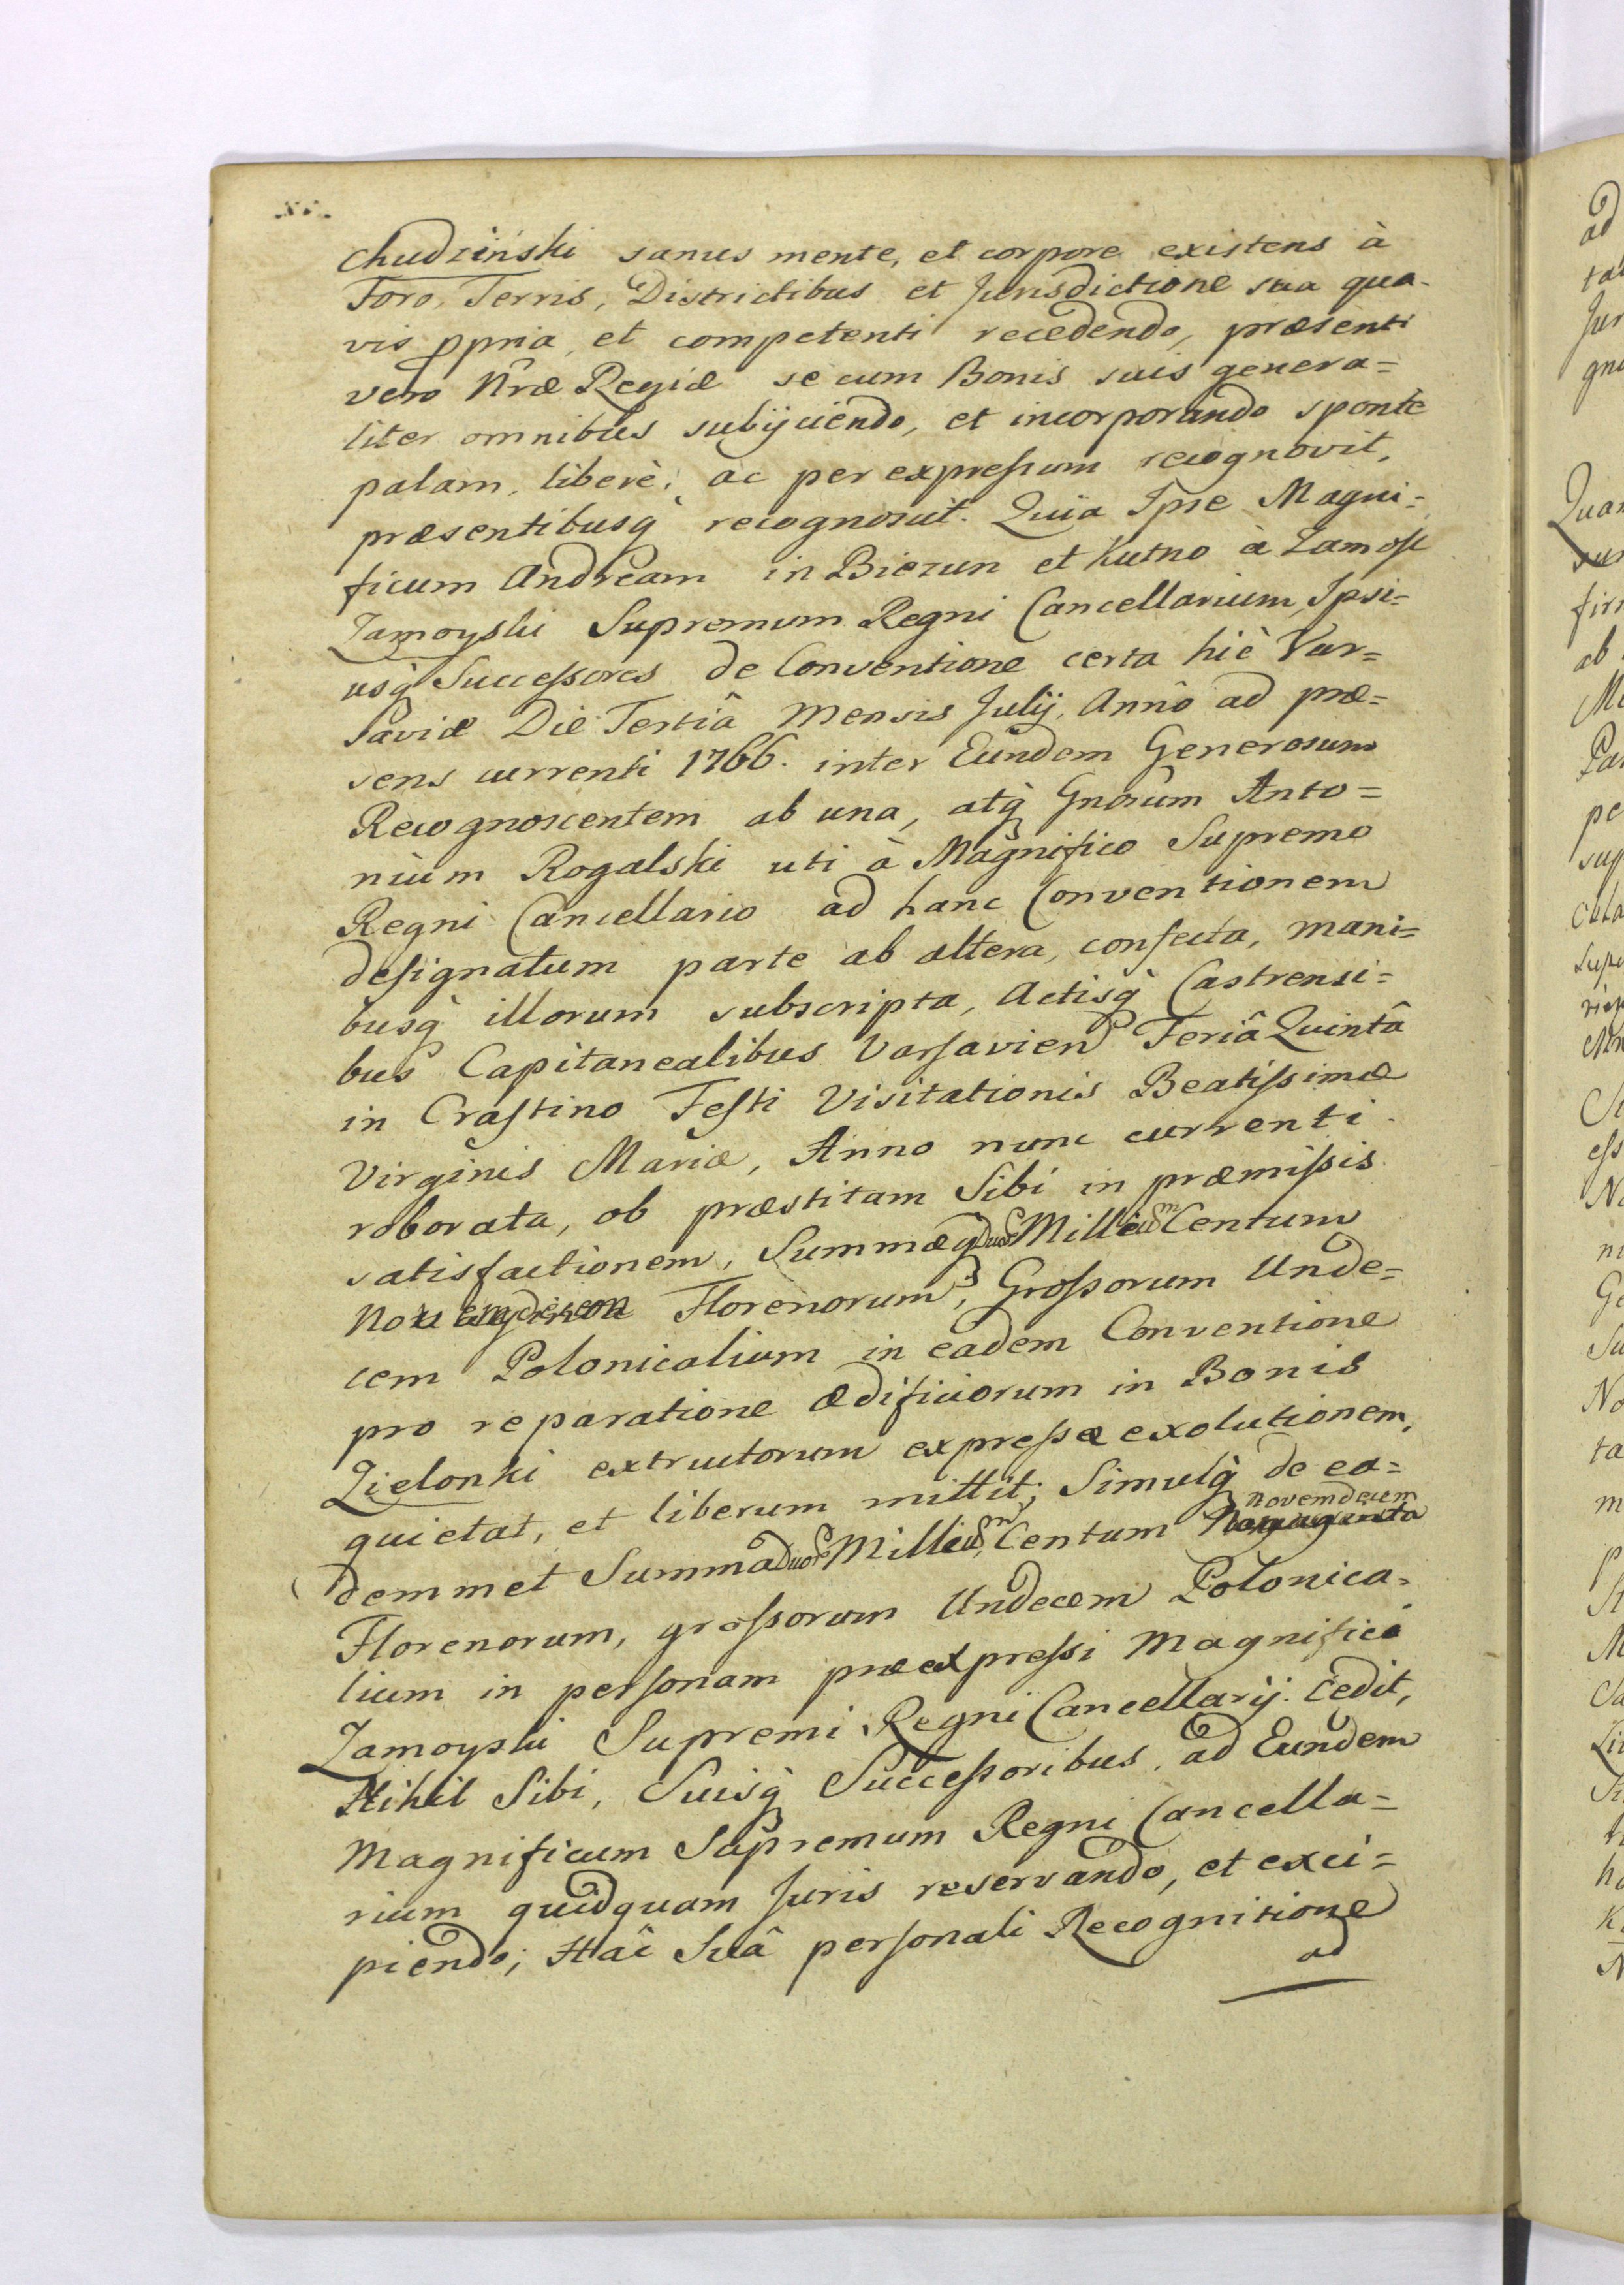 Chudziński sanus mente, et corpore existens à
Foro, Terris, Districtibus et Jurisdictione sua qua-
vis ppria, et competenti recedendo, præsenti
vero Nræ Regiæ se cum Bonis suis genera=
liter omnibus subijciendo, et incorporando sponte
palam, liberè, ac per expressum recognovit,
præsentibusq̀ recognoscit. Quia Ipse Magni=
ficum Andream in Biezun et Kutno à Zamosc
Zamoyski Supremum Regni Cancellarium, Ipsi=
usq̀ Successores de Conventione certa hic Var=
saviæ Die Tertiâ Mensis Julij, Annô ad præ=
sens currenti 1766. inter Eundem Generosum
Recognoscentem ab una, atq̀ Gnosum Anto=
nium Rogalski uti à Magnifico Supremo
Regni Cancellario ad hanc Conventionem
designatum parte ab altera, confecta, mani=
busq̀ illorum subscripta, Actisq̀ Castrensi=
bus Capitanealibus Varsavien Feriâ Quintâ
in Crastino Festi Visitationis Beatissimæ
Virginis Mariæ, Anno nunc currenti
roborata, ob præstitam Sibi in præmissis
satisfactionem, Summæq̀ duor Millium Centum
Novemdecem Florenorum, Grossorum Unde=
cem Polonicalium in eadem Conventione
pro reparatione ædificiorum in Bonis
Zielonki extructorum expressæ exolutionem,
quietat, et liberum mittit; Simulq̀ de ea=
demmet Summa duor Millium Centum novemdecem
Florenorum, grossorum Undecem Polonica=
lium in personam præexpressi Magnifici
Zamoyski Supremi Regni Cancellarij cedit,
Nihil Sibi, Suisq̀ Successoribus, ad Eundem
Magnificum Supremum Regni Cancella=
rium quidquam Juris reservando, et exci=
piendo; Hâc Suâ personali Recognitione
ad